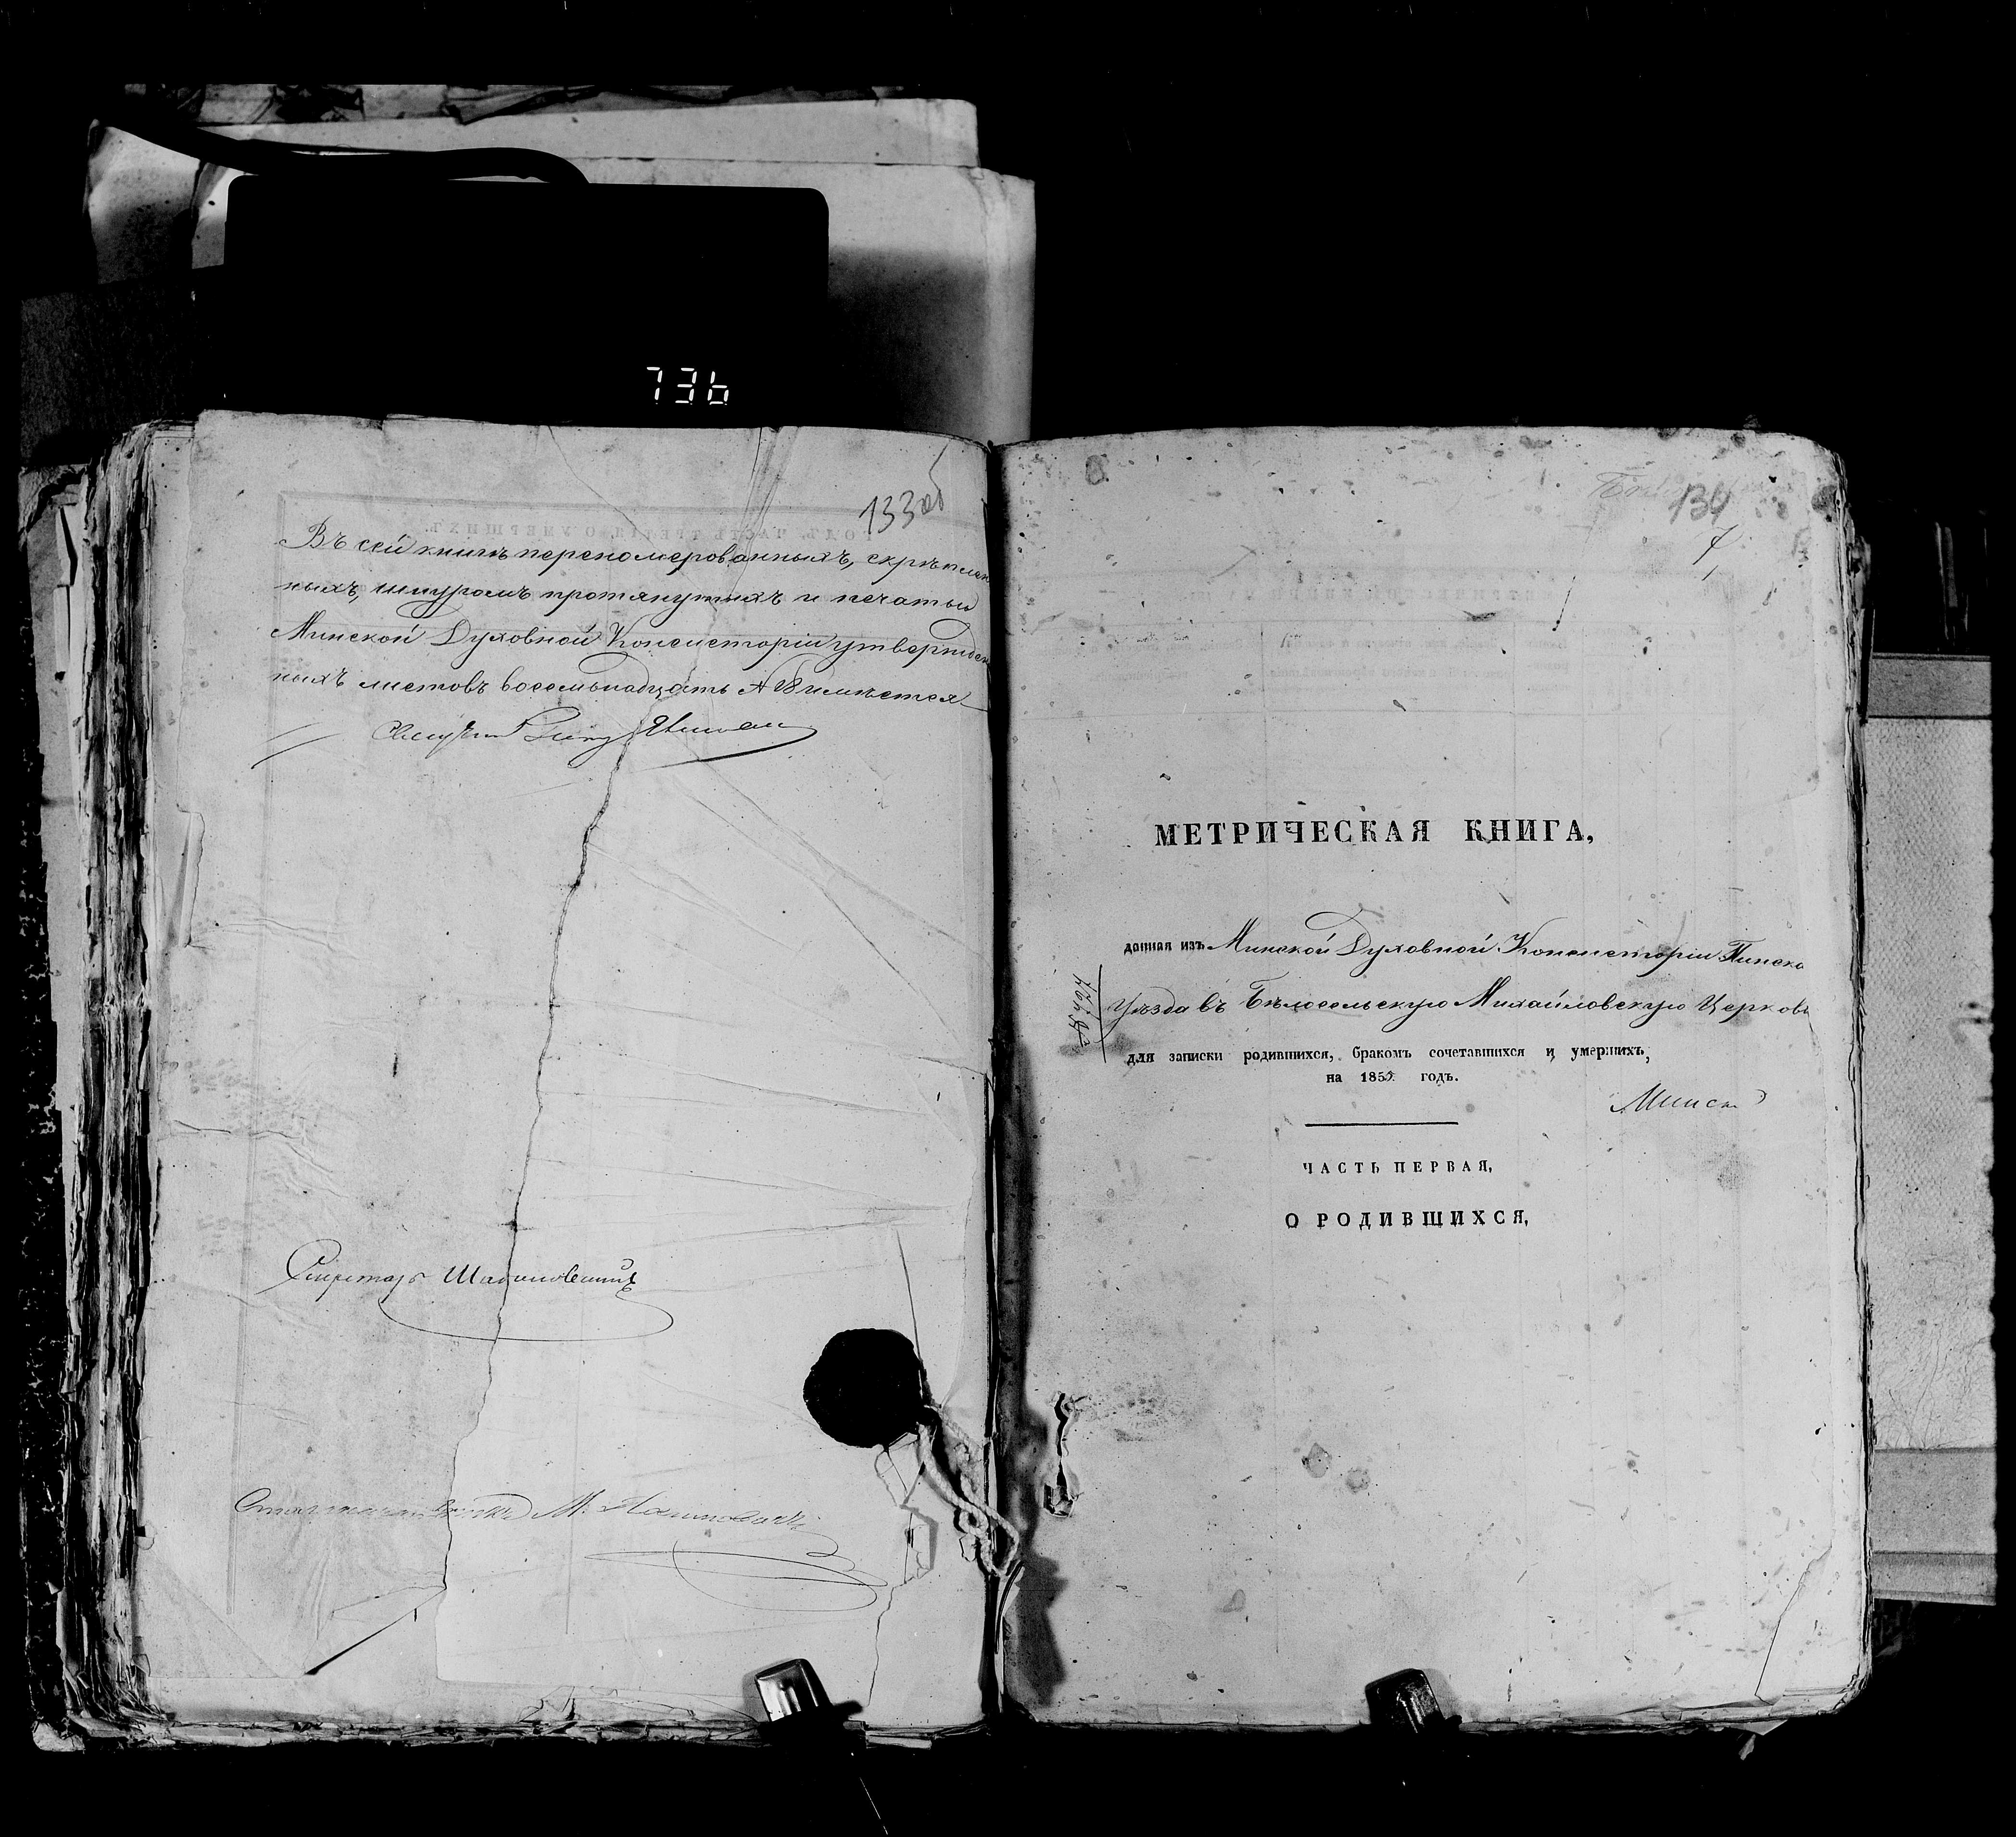 736
133 об
Въ сей книгѣ перепомерованныхъ, скрѣплен
ныхъ, шнуромъ протянутыхъ и печатью
Минской Духовной Консисторіи утвержден
ныхъ листовъ восемьнадцать имѣется
Секретарь
134
7
МЕТРИЧЕСКАЯ КНИГА,
данная изъ Минской Духовной Консисторіи Пинска
Уѣзда въ Бѣлосельскую Михайловскую Церковь
для записки родившихся, бракомъ сочетавшихся и умершихъ,
на 185 годъ.
ЧАСТЬ ПЕРВАЯ,
О РОДИВШИХСЯ,